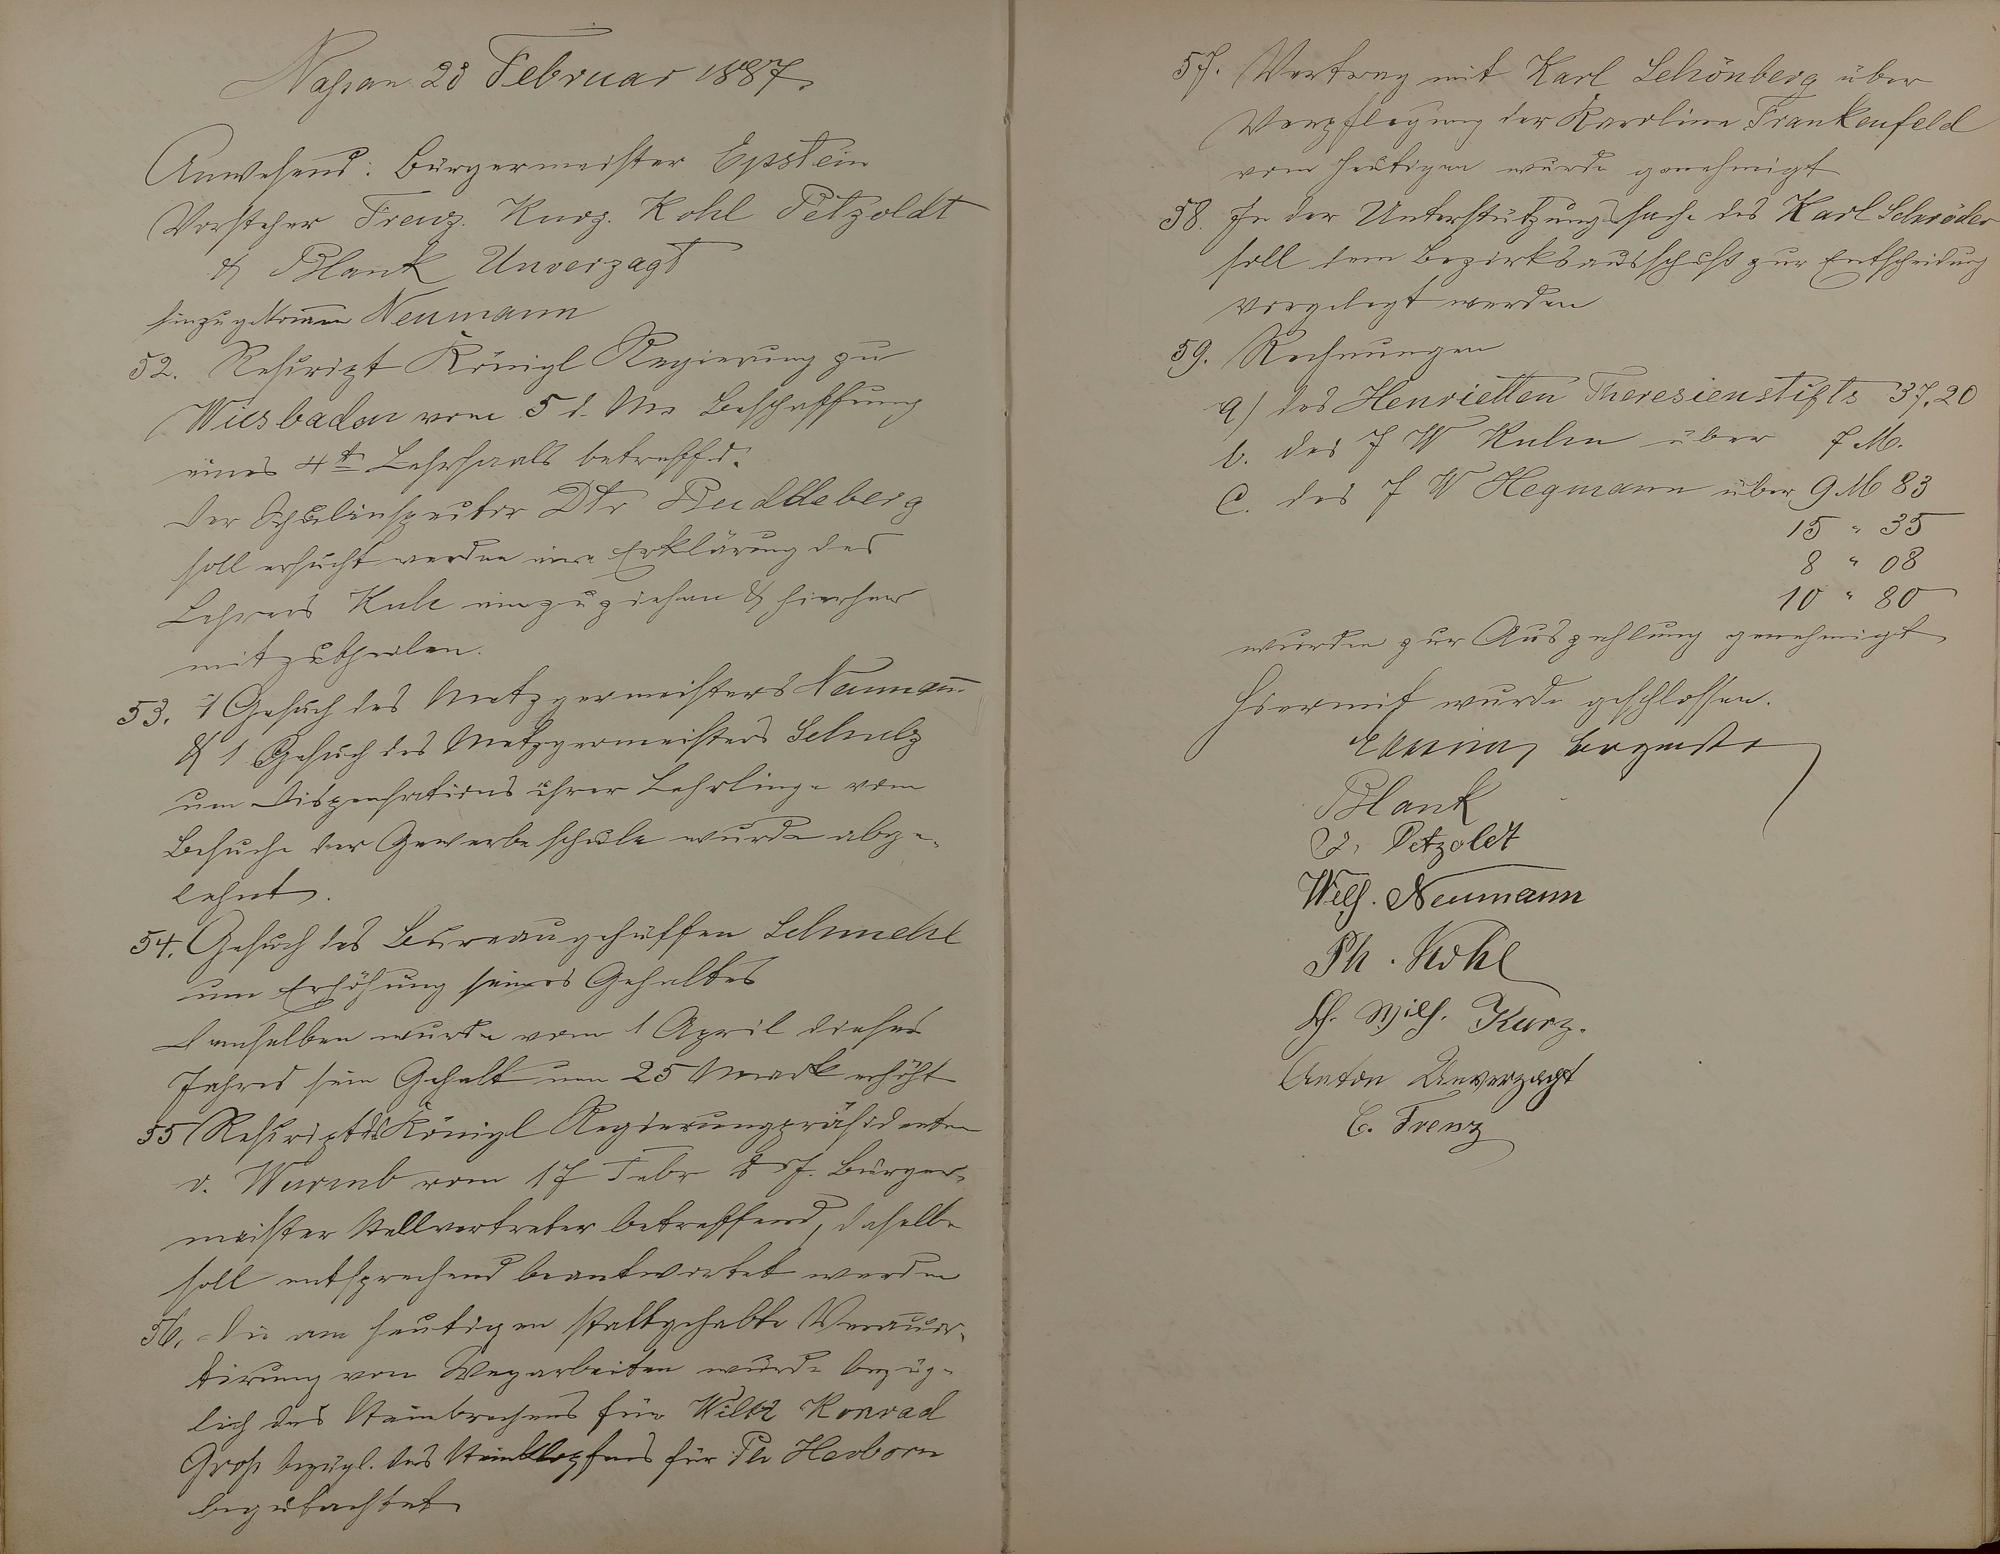 Nassau 23 Februar 1887.
Anwesend: Bürgermeister Epstein
Vorsteher Frenz. Kurz. Kohl Petzoldt
& Blank Unverzagt
hinzugekommen Neumann
52. Rescript Königl Regierung zu
Wiesbaden vom 5 d. Ms Beschaffung
eines 4t Lehrsaals betreffd.
Der Schulinspector Dtr Buddeberg
soll ersucht werden eine Erklärung des
Lehrers einzuziehen & hierher
mitzutheilen.
53. 1 Gesuch des Metzgermeisters Neumann
& 1 Gesuch des Metzgermeisters Schulz
um Dispensations ihrer Lehrlinge vom
Besuche der Gewerbeschule wurde abge-
lehnt.
54. Gesuch des Bureaugehülfen Schmehl
um Erhöhung seines Gehaltes
Demselben wurde vom 1 April dieses
Jahres sein Gehalt um 25 Mark erhöht
55 Rescript des Königl Regierungspräsidenten
v. Wurmb vom 17 Febr Bürger-
meister Stellvertreter betreffend, daselbe
soll entsprechend beantwortet werden
56. Die am heutigen stattgehabte Veraccor-
dirung von Wegarbeiten wurde bezüg-
lich des Steinbrechens für Konrad
Groß bezügl. des Steinklopfens für Ph Herborn
begutachtet
57. Vertrag mit Karl Schönberg über
Verpflegung der Karoline Frankenfeld
vom heutigen wurde genehmigt
58. In der Unterstützungssache des Karl Schröder
soll dem Bezirksausschuß zur Entscheidung
vorgelegt werden
59. Rechnungen
a) des Henrietten Theresienstifts 37,20
b. des J W Kuhn über 7 M.
c. des J W Hegmann über 9 M 83
15 " 35
8 " 08
10 " 80
wurden zur Auszahlung genehmigt
Hiermit wurde geschlossen.
Blank
Petzoldt
Wilh. Neumann
Ph. Kohl
Wilh. Kurz.
Anton Unverzagt
C. Frenz